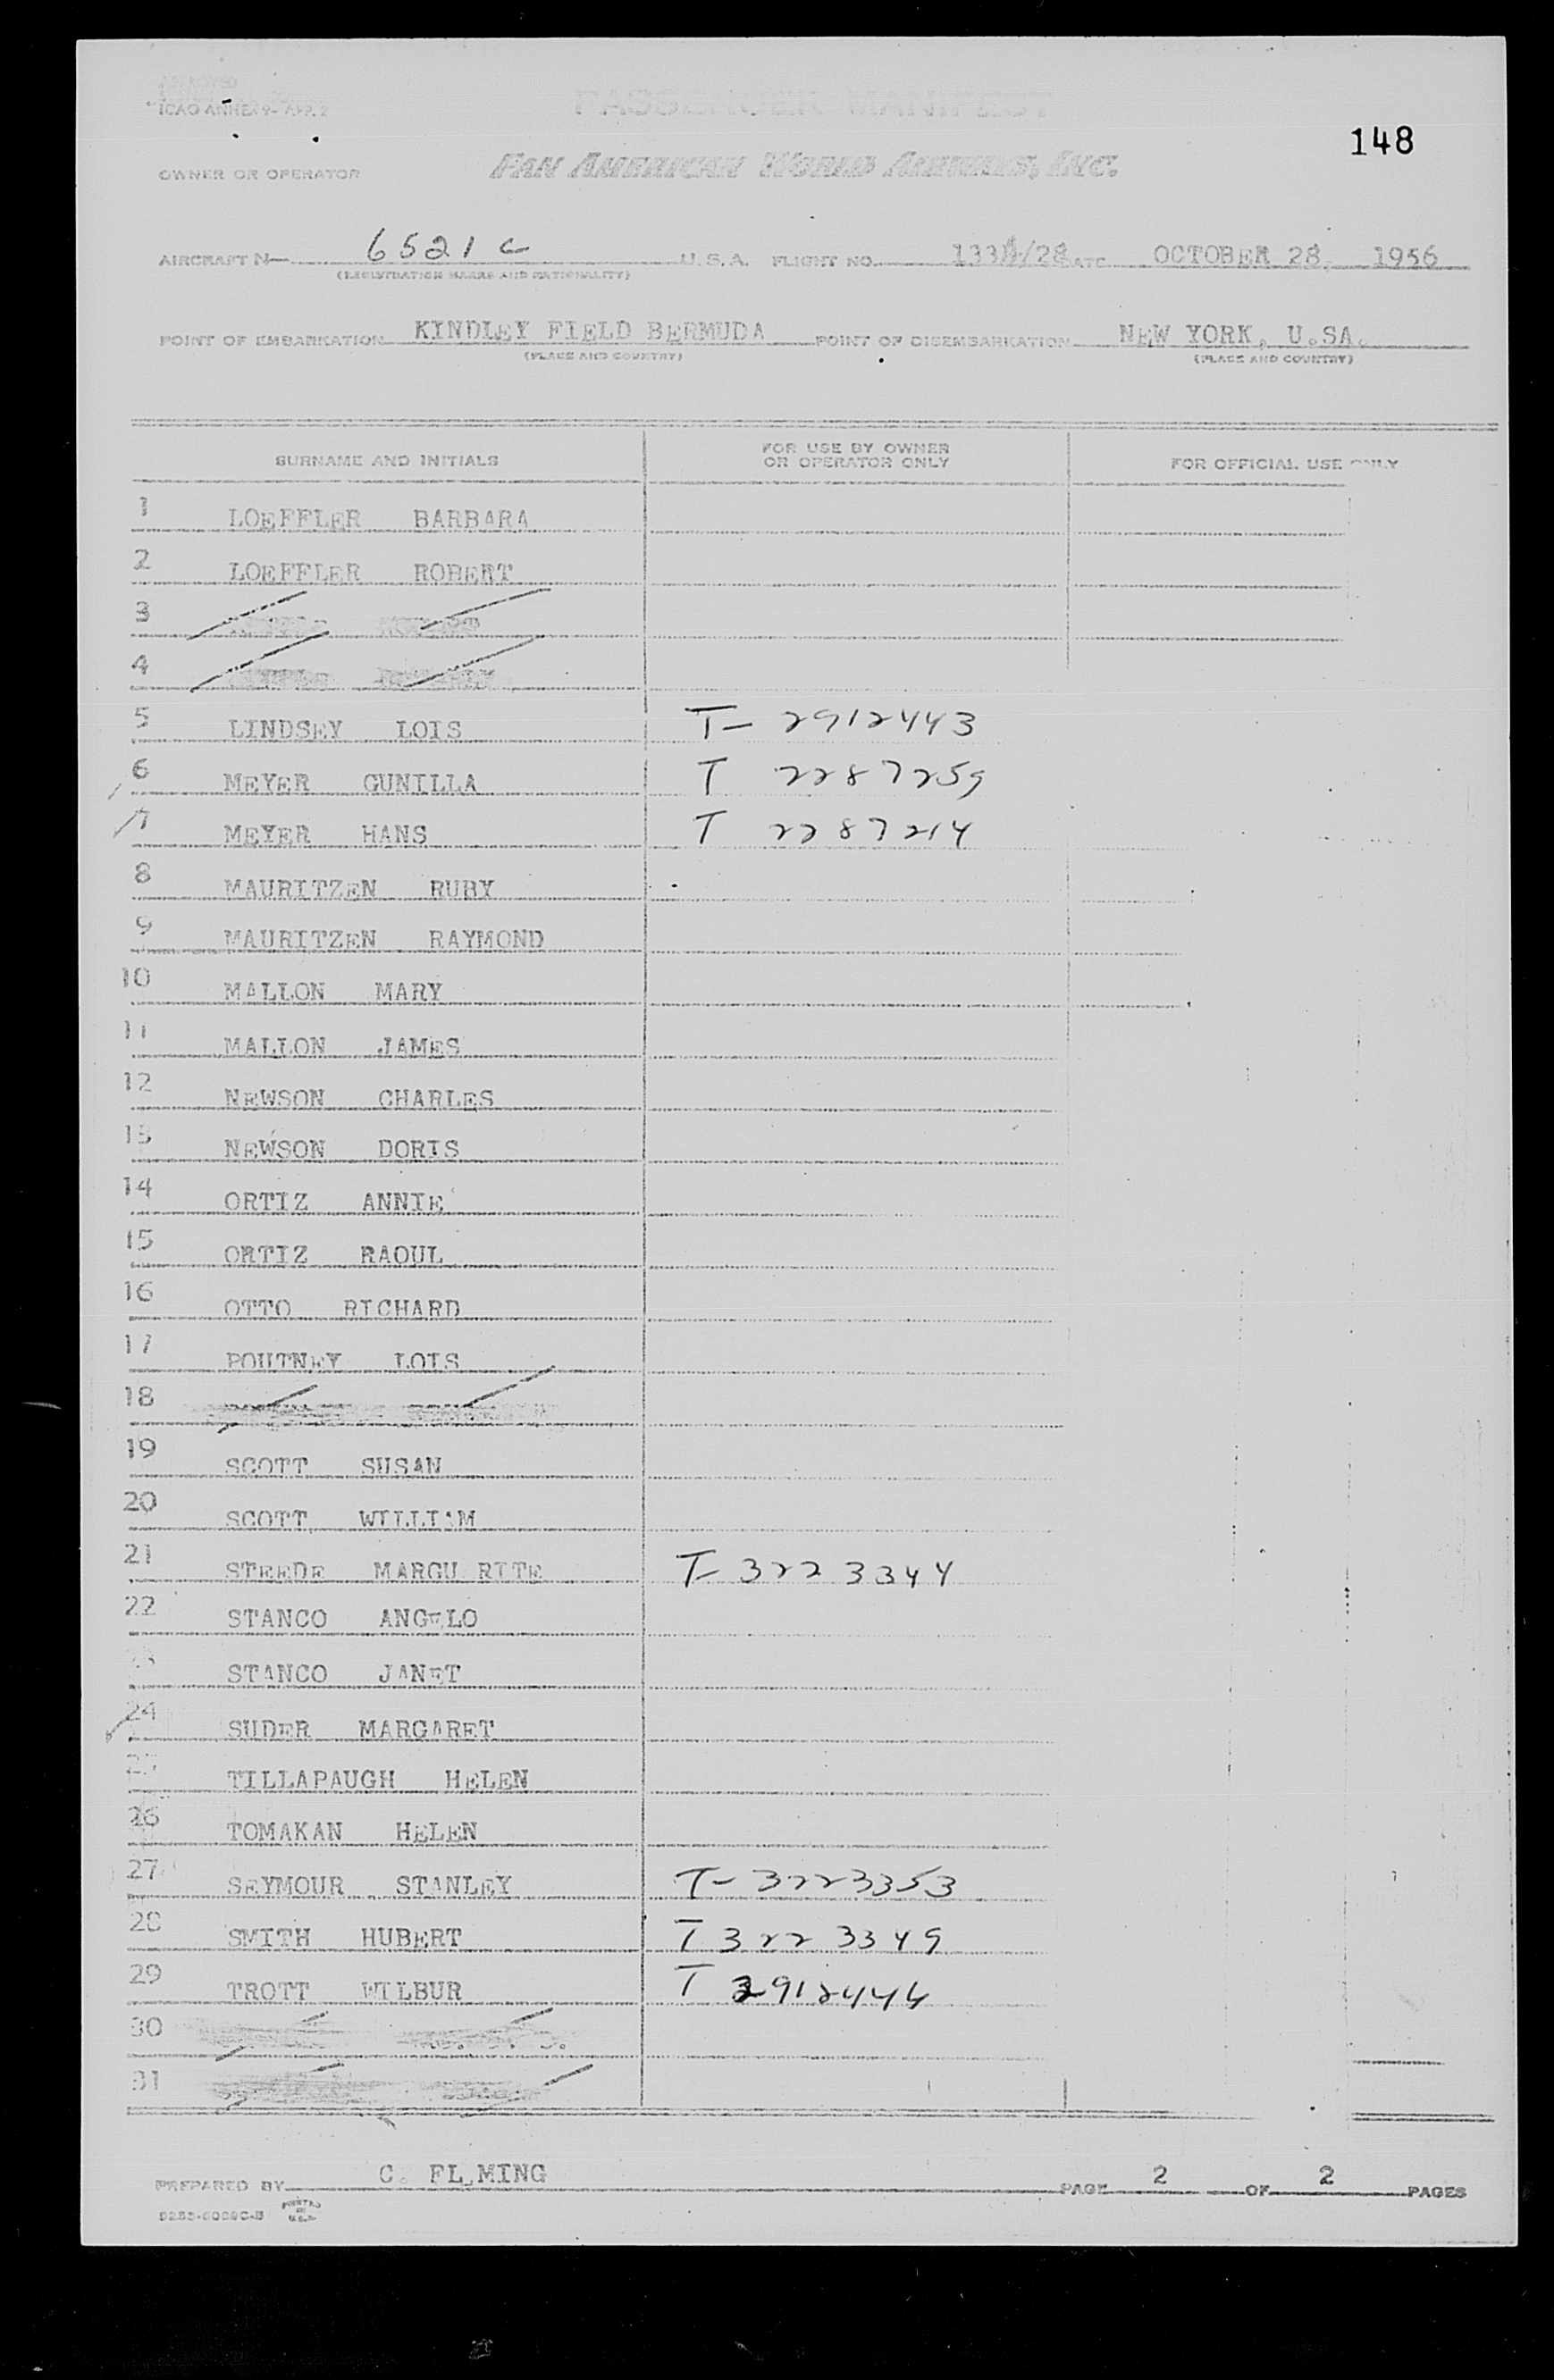 ICAO ANNEX 9- APP. 2
PASSENGER MANIFEST
148
OWNER OR OPERATOR PAN AMERICAN WORLD AIRWAYS, INC.
AIRCRAFT N— 6521 C U.S.A. FLIGHT NO. 1334/28 DATE OCTOBER 28, 1956
(REGISTRATION MARKS AND NATIONALITY)
POINT OF EMBARKATION KINDLEY FIELD BERMUDA POINT OF DISEMBARKATION NEW YORK, U.SA.
(PLACE AND COUNTRY) (PLACE AND COUNTRY)
SURNAME AND INITIALS FOR USE BY OWNER OR OPERATOR ONLY FOR OFFICIAL USE ONLY
1 LOEFFLER BARBARA
2 LOEFFLER ROBERT
3
4
5 LINDSEY LOIS T- 2912443
6 MEYER GUNILLA T 2287259
7 MEYER HANS T 2287214
8 MAURITZEN RUBY
9 MAURITZEN RAYMOND
10 MALLON MARY
11 MALLON JAMES
12 NEWSON CHARLES
13 NEWSON DORIS
14 ORTIZ ANNIE
15 ORTIZ RAOUL
16 OTTO RICHARD
17 POUTNEY LOIS
18
19 SCOTT SUSAN
20 SCOTT WILLIAM
21 STEEDE MARGU RITE T- 3223344
22 STANCO ANGELO
23 STANCO JANET
24 SUDER MARGARET
25 TILLAPAUGH HELEN
26 TOMAKAN HELEN
27 SEYMOUR STANLEY T- 3223353
28 SMITH HUBERT T 3223349
29 TROTT WILBUR T 2912446
30
31
PREPARED BY C. FLEMING PAGE 2 OF 2 PAGES